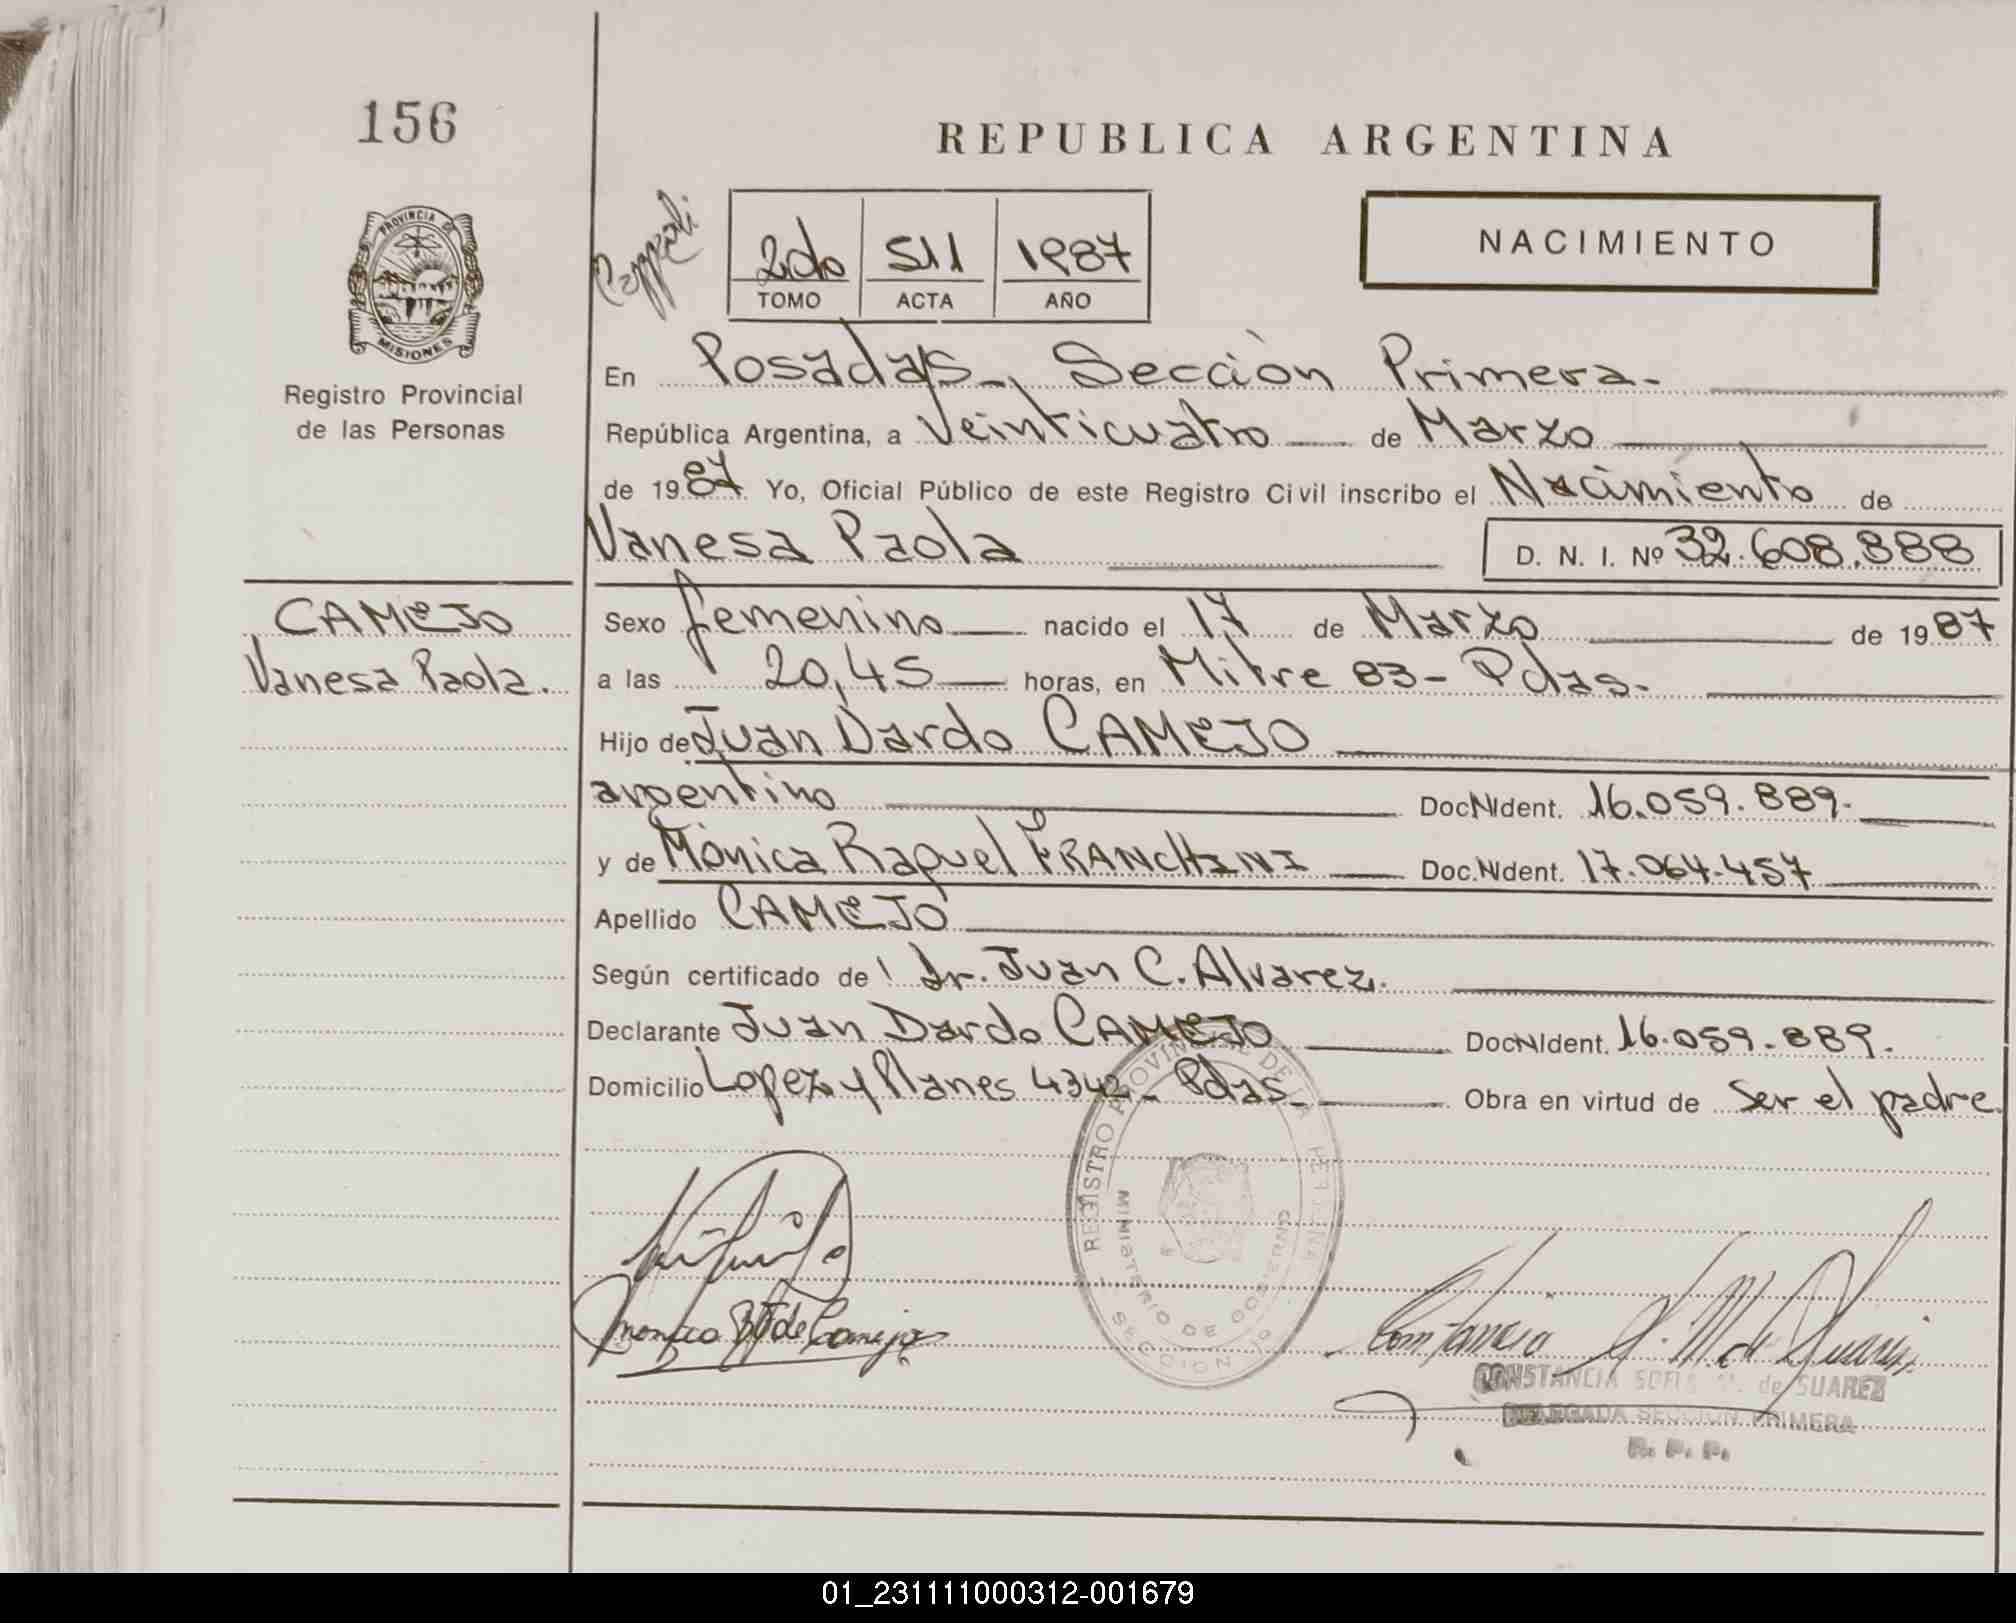 156
REPUBLICA ARGENTINA
PROVINCIA DE
MISIONES
Registro Provincial
de las Personas
2do 511 1987
TOMO ACTA AÑO
NACIMIENTO
En Posadas, Sección Primera-
República Argentina, a Veinticuatro de Marzo
de 1987 Yo, Oficial Público de este Registro Civil inscribo el Nacimiento de
Vanesa Paola D. N. I. Nº 32.608.888
CAMEJO
Vanesa Paola.
Sexo femenino nacido el 17 de Marzo de 1987
a las 20,45 horas, en Mitre 83- Pdas.
Hijo de Juan Dardo CAMEJO
argentino DocNIdent. 16.059.889-
y de Mónica Raquel FRANCHINI Doc.NIdent. 17.064.457
Apellido CAMEJO
Según certificado de Dr. Juan C. Alvarez.
Declarante Juan Dardo CAMEJO DocNIdent. 16.059.889.
Domicilio Lopez y Planes 4342- Pdas- Obra en virtud de Ser el padre.
REGISTRO PROVINCIAL DE
MINISTERIO DE GOBIERNO
SECCION
CONSTANCIA SOFIA M. de SUAREZ
DELEGADA SECCION PRIMERA
R. P. P.
01_231111000312-001679